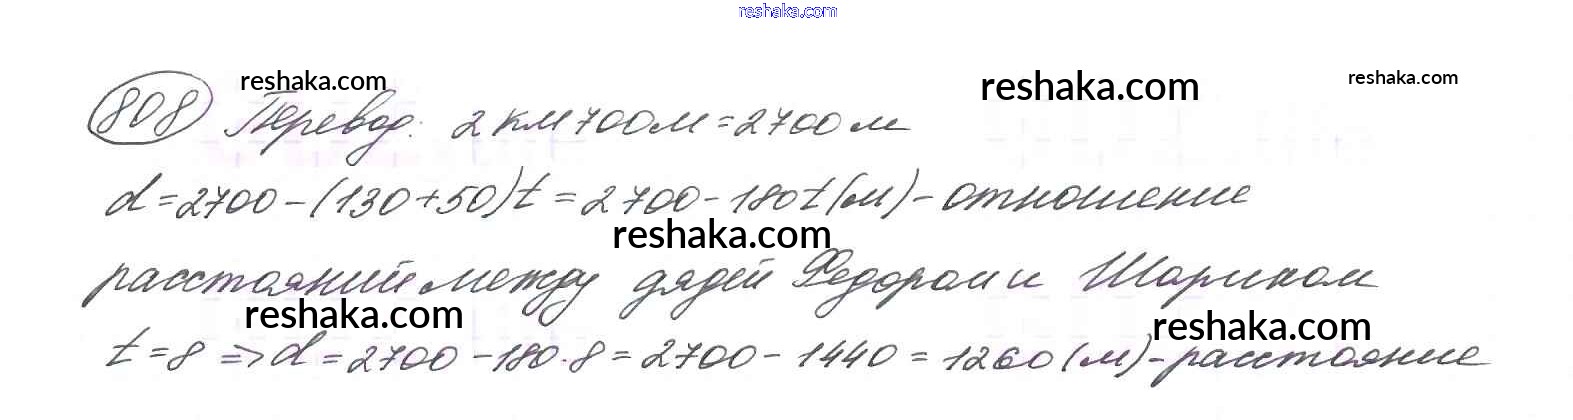 reshaka.com
reshaka.com reshaka.com reshaka.com
808 Перевод: 2 км 700 м = 2700 м
d = 2700 - (130 + 50)t = 2700 - 180t (м) - отношение
reshaka.com
расстояний между дядей Федором и Шариком
reshaka.com reshaka.com
t = 8 => d = 2700 - 180 · 8 = 2700 - 1440 = 1260 (м) - расстояние